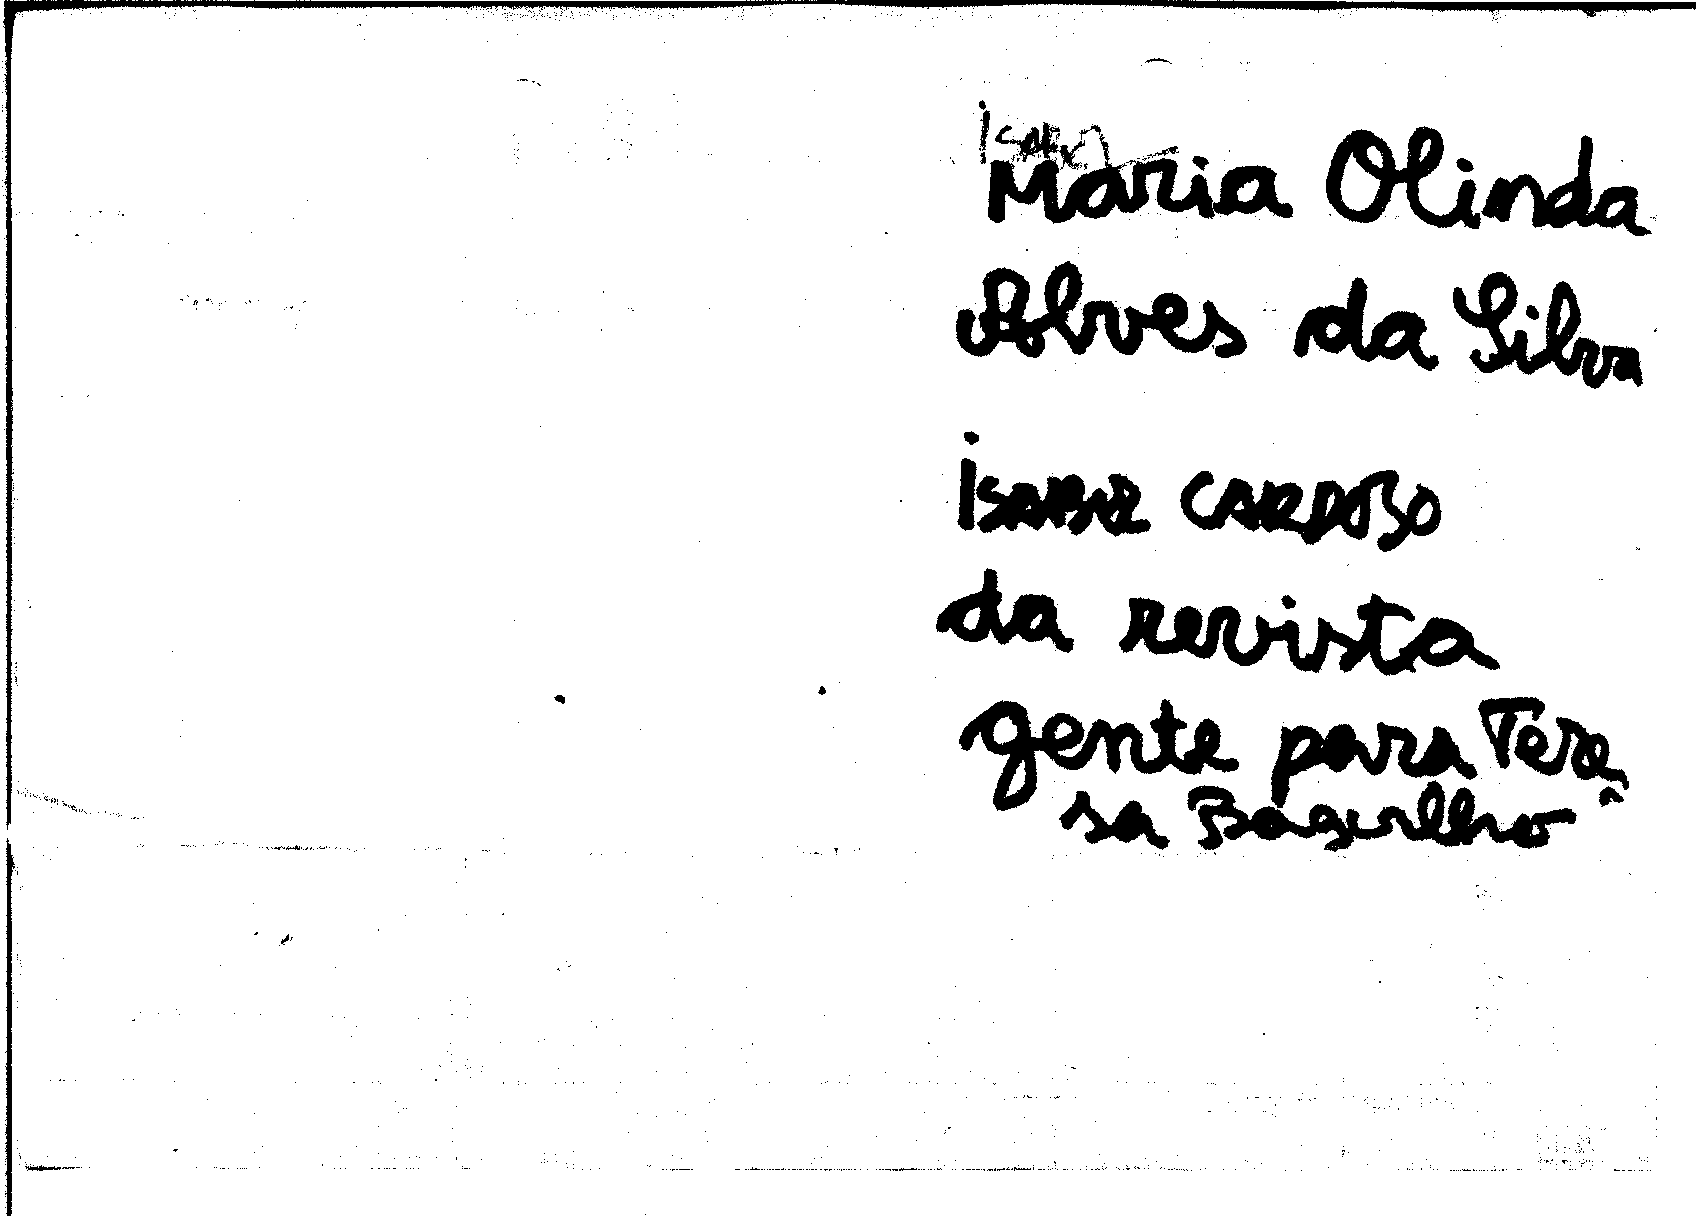 Isabel
Maria Olinda
Alves da Silva
ISABEL CARDOSO
da revista
gente para Tere
sa Bagulho